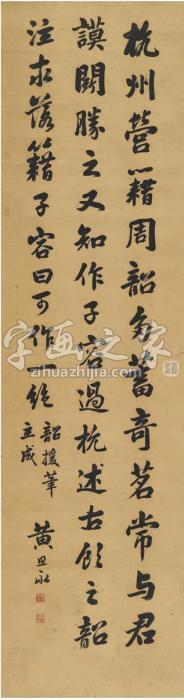 杭州營籍周韶多蓄奇茗常与君
謨闘勝之又知作子容過杭述古飲之韶
泣求落籍子容曰可作一絶
韶援筆
立成
黃思永
字画之家
zihuazhijia.com